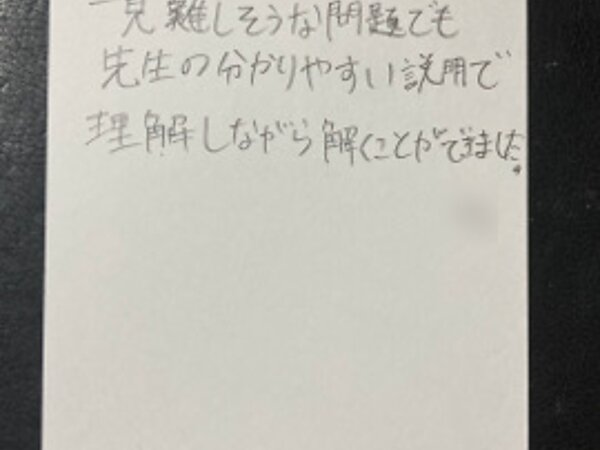 一見難しそうな問題でも
先生の分かりやすい説明で
理解しながら解くことができました。